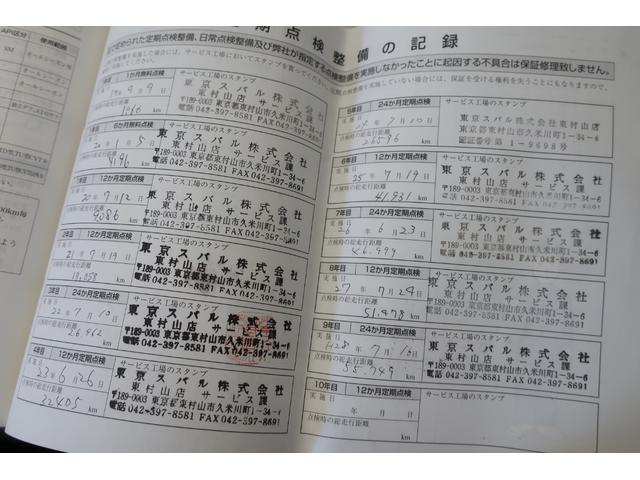 定期点検整備の記録
API区分
使用範囲
SM
で定められた定期点検整備、日常点検整備及び弊社が指定する点検整備を実施しなかったことに起因する不具合は保証修理致しません。
1か月無料点検
サービス工場のスタンプ
東京スバル株式会社
東村山店 サービス課
〒189-0003 東京都東村山市久米川町1-34-6
電話042-397-8581 FAX042-397-8691
6か月無料点検
サービス工場のスタンプ
20年1月5日
東京スバル株式会社
東村山店 サービス課
〒189-0003 東京都東村山市久米川町1-34-6
電話042-397-8581 FAX042-397-8691
1年目 12か月定期点検
サービス工場のスタンプ
20年7月12日
東京スバル株式会社
東村山店 サービス課
9086 km
〒189-0003 東京都東村山市久米川町1-34-6
電話042-397-8581 FAX042-397-8691
2年目 12か月定期点検
サービス工場のスタンプ
実施日
21年7月19日
東京スバル株式会社
東村山店 サービス課
点検時の総走行距離
km
〒189-0003 東京都東村山市久米川町1-34-6
電話042-397-8581 FAX042-397-8691
3年目 24か月定期点検
サービス工場のスタンプ
実施日
22年7月10日
東京スバル株式会社
東村山店 サービス課
点検時の総走行距離
26462 km
〒189-0003 東京都東村山市久米川町1-34-6
電話042-397-8581 FAX042-397-8691
4年目 12か月定期点検
サービス工場のスタンプ
実施日
23年6月26日
東京スバル株式会社
東村山店 サービス課
点検時の総走行距離
32405 km
〒189-0003 東京都東村山市久米川町1-34-6
電話042-397-8581 FAX042-397-8691
24か月定期点検
サービス工場のスタンプ
7月10日
東京スバル株式会社
東村山店 サービス課
東京都東村山市久米川町1-34-6
認証番号第1-9698号
6年目 12か月定期点検
サービス工場のスタンプ
実施日
25年7月19日
東京スバル株式会社
東村山店 サービス課
点検時の総走行距離
41,931 km
〒189-0003 東京都東村山市久米川町1-34-6
電話042-397-8581 FAX042-397-8691
7年目 24か月定期点検
サービス工場のスタンプ
実施日
26年6月23日
東京スバル株式会社
東村山店 サービス課
点検時の総走行距離
46,999 km
〒189-0003 東京都東村山市久米川町1-34-6
電話042-397-8581 FAX042-397-8691
8年目 12か月定期点検
サービス工場のスタンプ
実施日
27年7月24日
東京スバル株式会社
東村山店 サービス課
点検時の総走行距離
51,478 km
〒189-0003 東京都東村山市久米川町1-34-6
電話042-397-8581 FAX042-397-8691
9年目 24か月定期点検
サービス工場のスタンプ
実施日
東京スバル株式会社
東村山店 サービス課
点検時の総走行距離
55,749 km
〒189-0003 東京都東村山市久米川町1-34-6
電話042-397-8581 FAX042-397-8691
10年目 12か月定期点検
サービス工場のスタンプ
実施日
年 月 日
点検時の総走行距離
km